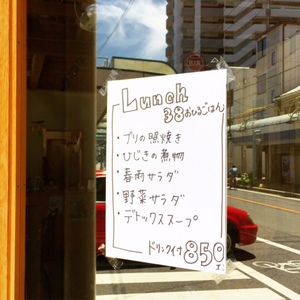 Lunch
38おひるごはん
・ブリの照焼き
・ひじきの煮物
・春雨サラダ
・野菜サラダ
・デトックススープ
ドリンク付 850